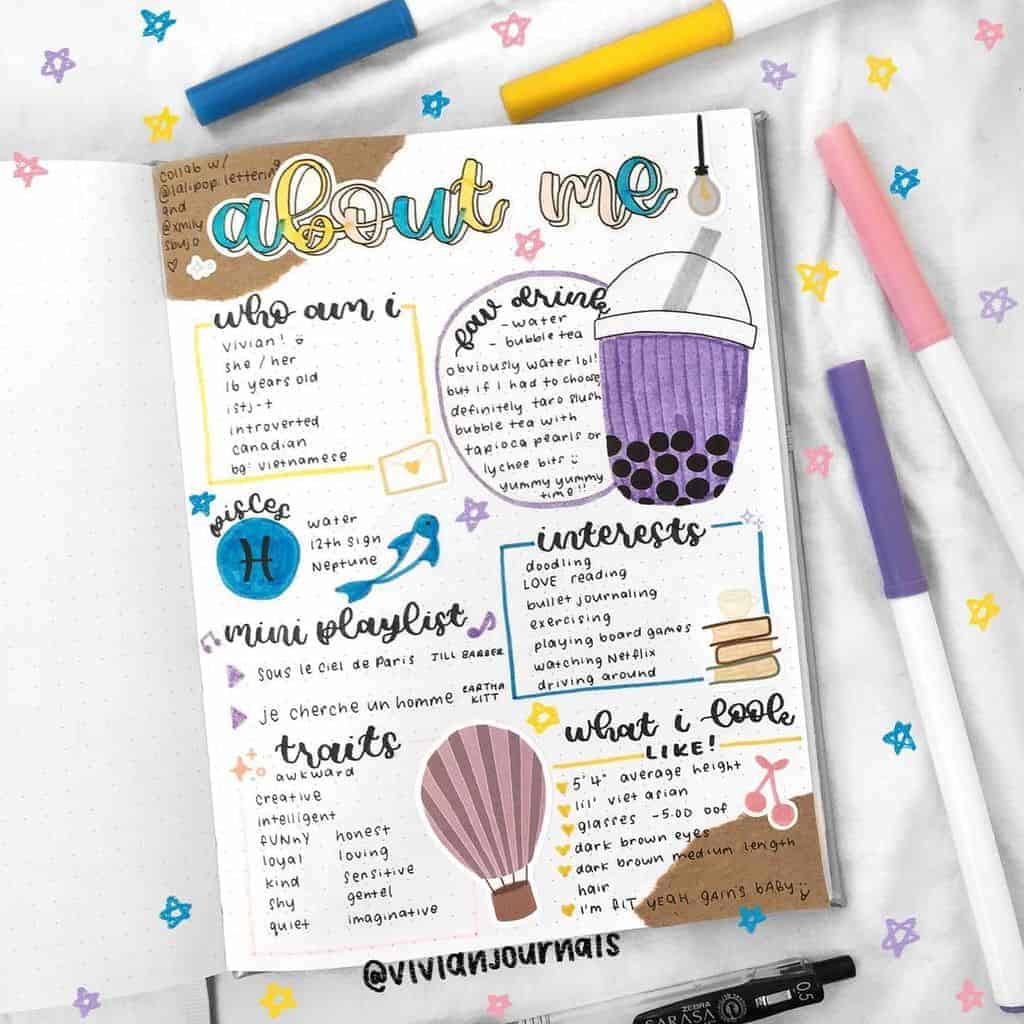 collab w/
@lalipop.lettering
and
@xmily
sbujo
about me
who am i
vivian!
she / her
16 years old
istj-t
introverted
canadian
bg: vietnamese
fav drink
- water
- bubble tea
obviously water lol!
but if i had to choose
definitely taro slush
bubble tea with
tapioca pearls or
lychee bits
yummy yummy
time!!
pisces
water
12th sign
Neptune
mini playlist
sous le ciel de Paris JILL BARBER
je cherche un homme EARTHA
KITT
interests
doodling
LOVE reading
bullet journaling
exercising
playing board games
watching Netflix
driving around
traits
awkward
creative
intelligent
fUNNY honest
loyal loving
kind sensitive
shy gentel
quiet imaginative
what i look
LIKE!
5'4" average height
lil' viet asian
glasses -5.00 oof
dark brown eyes
dark brown medium length
hair
I'm FIT YEAH gains baby
@vivianjournals
ZEBRA
SARASA
0.5